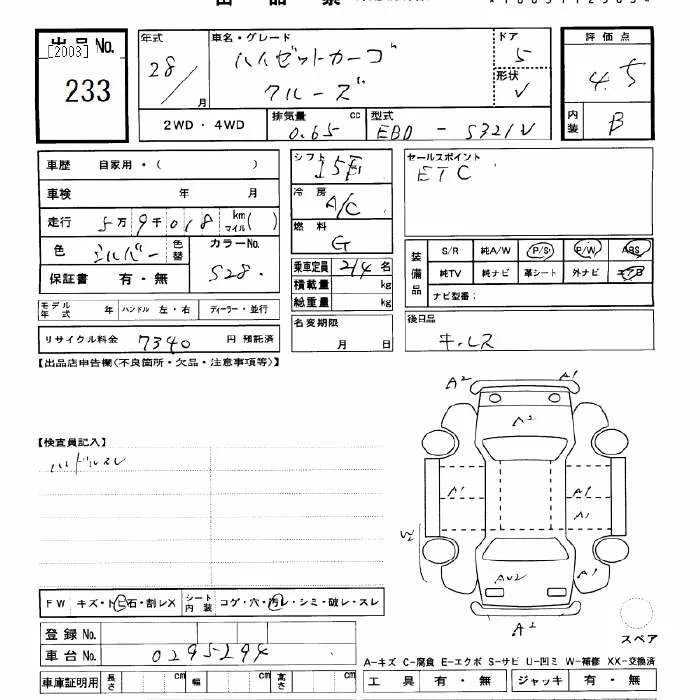 出品No.
[2003]
233
年式
28/月
車名・グレード
ハイゼットカーゴ
クルーズ
ドア
5
形状
V
評価点
4.5
内装
B
2WD・4WD
排気量 cc
0.65
型式
EBD - S321V
車歴 自家用・( )
車検 年 月
走行 5万9千018 km マイル( )
色 シルバー 色替
カラーNo.
S28
保証書 有・無
モデル年式 年 ハンドル 左・右 ディーラー・並行
リサイクル料金 7340 円 預託済
シフト
冷房
A/C
燃料
G
乗車定員 2/4 名
積載量 kg
総重量 kg
名変期限
月 日
セールスポイント
ETC
装備品
S/R 純A/W P/S P/W ABS
純TV 純ナビ 革シート 外ナビ エアB
ナビ型番:
後日品
キーレス
【出品店申告欄(不良箇所・欠品・注意事項等)】
【検査員記入】
ハンドルスレ
A2 A1
A2
A1 A1
A1
W2
AU2 A1
A2
スペア
FW キズ・トビ石・割レX シート内装 コゲ・穴・汚レ・シミ・破レ・スレ
登録No.
車台No. 0295294
車庫証明用 長さ cm 幅 cm 高さ cm
A-キズ C-腐食 E-エクボ S-サビ U-凹ミ W-補修 XX-交換済
工具 有・無 ジャッキ 有・無